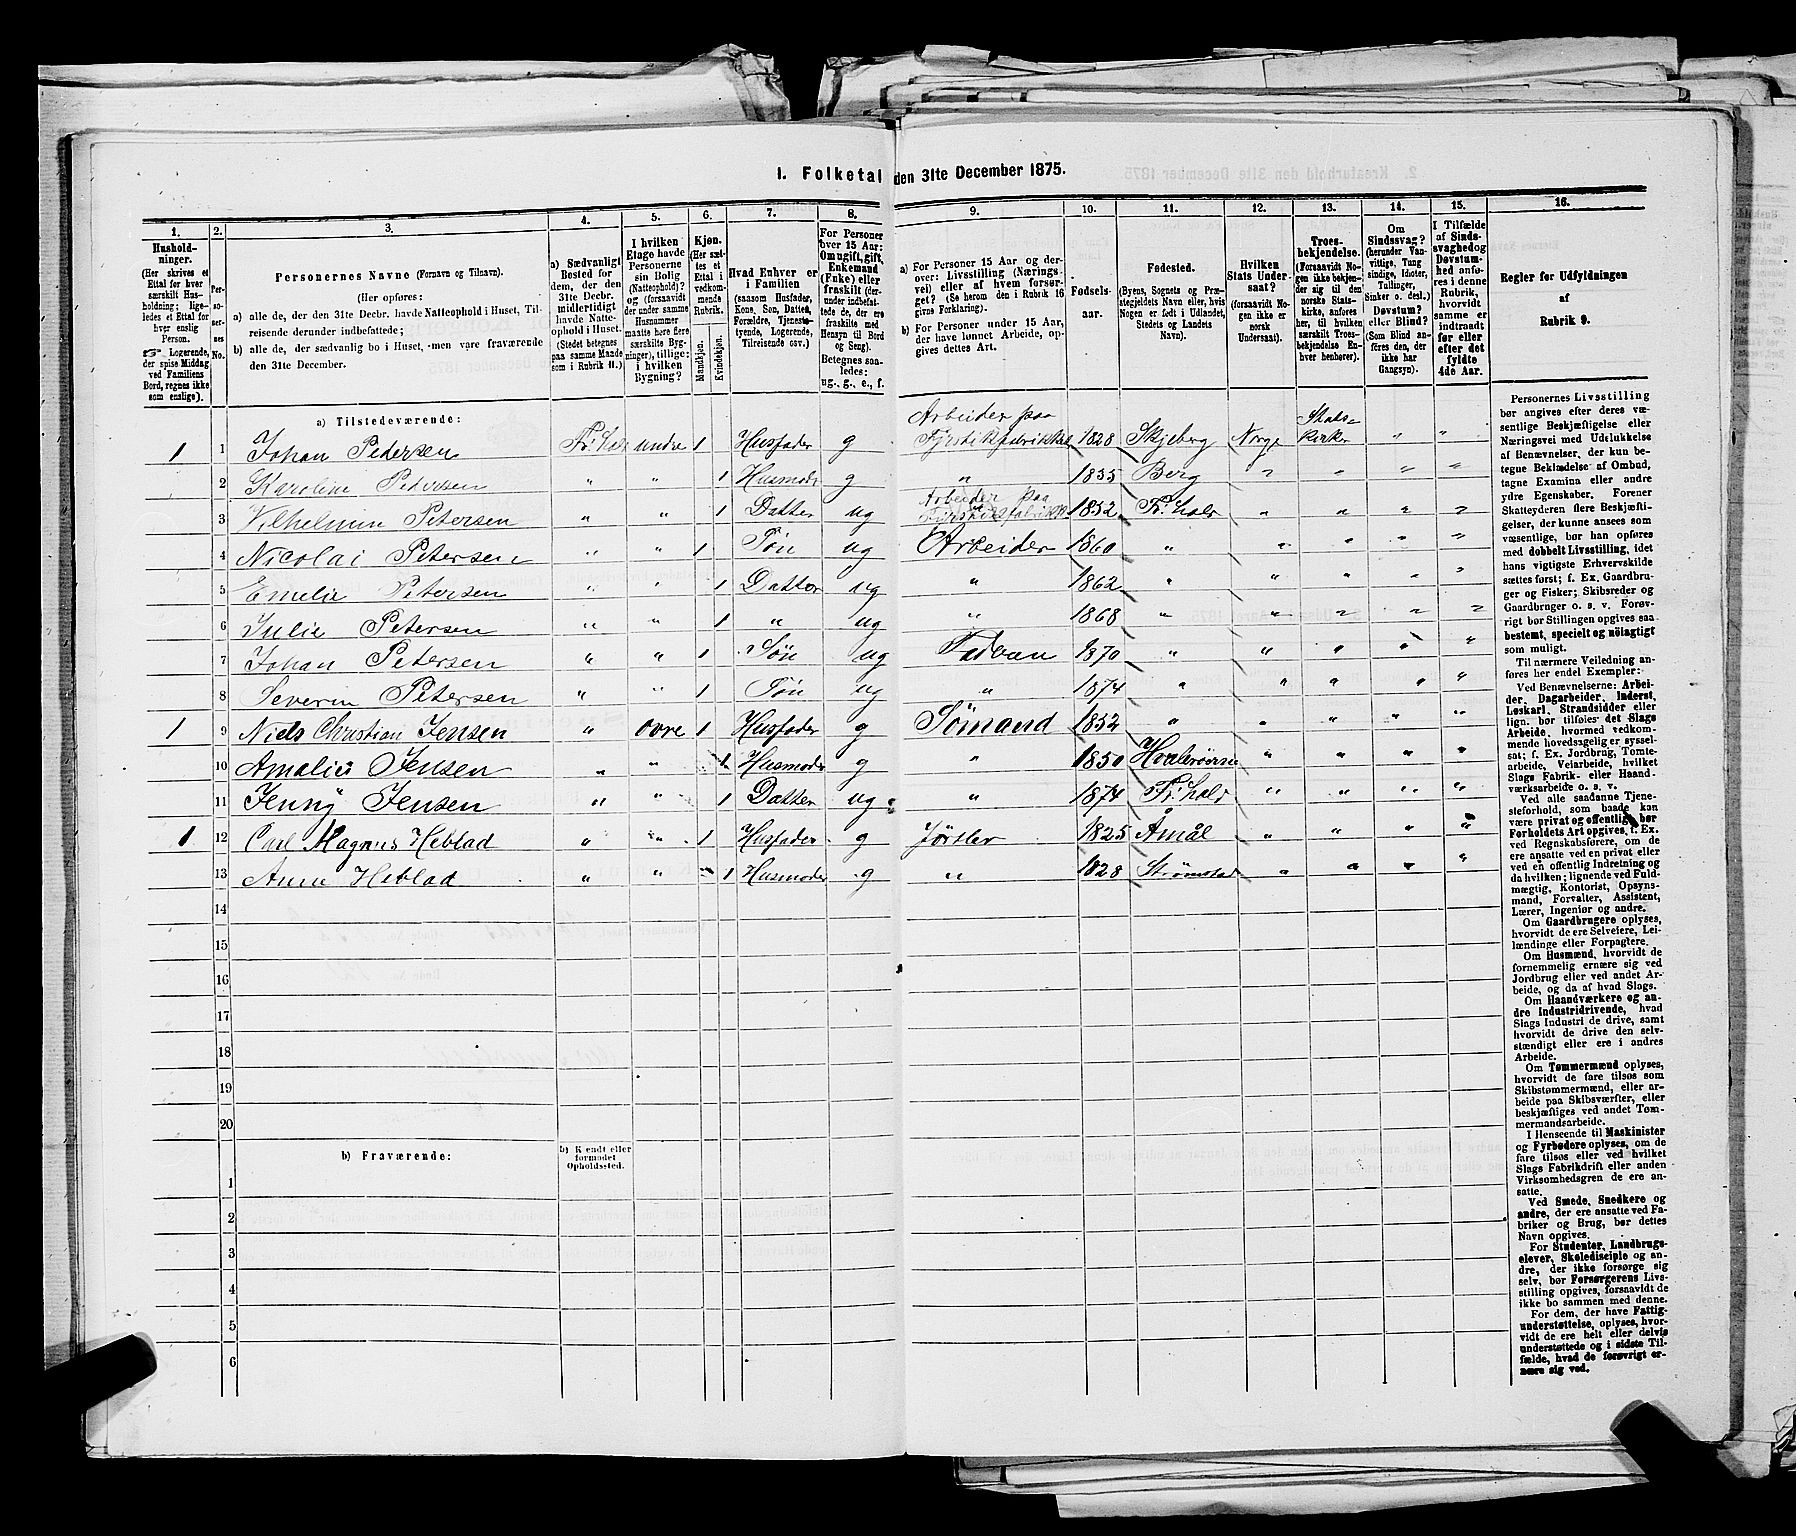 1. Folketal den 31te December 1875.
1. 2. 3. 4. 5. 6. 7. 8. 9. 10. 11. 12. 13. 14. 15. 16.
Hushold-
ninger.
(Her skrives et
Ettal for hver
særskilt Hus-
holdning; lige-
ledes et Ettal for
hver enslig
Person.
Logerende,
der spise Middag
ved Familiens
Bord, regnes ikke
som enslige).
Per-
so-
ner-
nes
No.
Personernes Navne (Fornavn og Tilnavn).
(Her opføres:
a) alle de, der den 31te Decbr. havde Natteophold i Huset, Til-
reisende derunder indbefattede;
b) alle de, der sædvanlig bo i Huset, men vare fraværende
den 31te December.
a) Sædvanligt
Bosted for
dem, der den
31te Decbr.
midlertidigt
havde Natte-
ophold i Huset.
(Stedet betegnes
paa samme Maade
som i Rubrik 11.)
I hvilken
Etage havde
Personerne
sin Bolig
(Natteophold)?
og (forsaavidt
der under samme
Husnummer
maatte høre flere
særskilte Byg-
ninger), tillige:
i hvilken
Bygning?
Kjøn.
(Her sæt-
tes et
Ettal i
vedkom-
mende
Rubrik.
Mandkjøn.
Kvindekjøn.
Hvad Enhver er
i Familien
(saasom Husfader,
Kone, Søn, Datter,
Forældre, Tjeneste-
tyende, Logerende,
Tilreisende osv.)
For Personer
over 15 Aar:
Om ugift, gift,
Enkemand
(Enke) eller
fraskilt (der-
under indbefat-
tede de, der ere
fraskilte med
Hensyn til Bord
og Seng).
Betegnes saa-
ledes:
ug., g., e., f.
a) For Personer 15 Aar og der-
over: Livsstilling (Nærings-
vei) eller af hvem forsør-
get? (Se herom den i Rubrik 16
givne Forklaring).
b) For Personer under 15 Aar,
der have lønnet Arbeide, op-
gives dettes Art.
Fødsels-
aar.
Fødested.
(Byens, Sognets og Præ-
stegjeldets Navn eller, hvis
Nogen er født i Udlandet,
Stedets og Landets
Navn).
Hvilken
Stats Under-
saat?
(forsaavidt No-
gen ikke er
norsk
Undersaat).
Troes-
bekjendelse.
(Forsaavidt No-
gen ikke bekjen-
der sig til den
norske Stats-
kirke, anføres
her, til hvilken
Troesbekjendelse En-
hver henhører).
Om
Sindssvag?
(herunder Van-
vittige, Tung
sindige, Idioter,
Tullinger,
Sinker o. desl.)
Døvstum?
eller Blind?
(Som Blind an-
føres den, der
ikke har
Gangsyn).
I Tilfælde
af Sinds-
svaghed og
Døvstum-
hed anfø-
res i denne
Rubrik,
hvorvidt
samme er
indtraadt
før eller
efter det
fyldte
4de Aar.
Regler for Udfyldningen
af
Rubrik 9.
a) Tilstedeværende:
1 1 Johan Petersen Fr: hald undre 1 Husfader g Arbeider paa Fyrstikfabrikke 1828 Skjeberg Norge Stats- kirke " "
2 Karoline Petersen " " 1 Husmod g " 1835 Berg " " " "
3 Vilhelmine Petersen " " 1 Datter ug Arbeider paa Fyrstikfabrikk 1852 Fr: hald " " " "
4 Nicolai Petersen " " 1 Søn ug Arbeider 1860 " " " " "
5 Emelie Petersen " " 1 Datter ug " 1862 " " " " "
6 Julie Petersen " " 1 " ug " 1868 " " " " "
7 Johan Petersen " " 1 Søn ug 1870 " " " " "
8 Severin Petersen " " 1 Søn ug " 1874 " " " " "
1 9 Niels Christian Jensen " ovre 1 Husfader g Sømand 1852 " " " " "
10 Amalie Jensen " " 1 Husmoder g " 1850 " " " "
11 Jenny Jensen " " 1 Datter ug " 1874 Fr: hald " " " "
1 12 Carl Magnus Heblad " " 1 Husfader g 1825 Åmål " " " "
13 Anne Heblad " " 1 Husmoder g " 1828 Strømstad " " " "
14
15
16
17
18
19
20
b) Fraværende:
b) Kjendt eller
formodet
Opholdssted.
1
2
3
4
5
6
Personernes Livsstilling
bør angives efter deres væ-
sentlige Beskjæftigelse eller
Næringsvei med Udelukkelse
af Benævnelser, der kun be-
tegne Beklædelse af Ombud,
tagne Examina eller andre
ydre Egenskaber. Forener
Skatteyderen flere Beskjæfti-
gelser, der kunne ansees som
væsentlige, bør han opføres
med dobbelt Livsstilling, idet
hans vigtigste Erhvervskilde
sættes først; f. Ex. Gaardbru-
ger og Fisker; Skibsreder og
Gaardbruger o. s. v. Forøv-
rigt bør Stillingen opgives saa
bestemt, specielt og nöiagtigt
som muligt.
Til nærmere Veiledning an-
føres her endel Exempler:
Ved Benævnelserne: Arbei-
der, Dagarbeider, Inderst,
Løskarl, Strandsidder eller
lign. bør tilføies det Slags
Arbeide, hvormed vedkom-
mende hovedsagelig er syssel-
sat; f. Ex. Jordbrug, Tomte-
arbeide, Veiarbeide, hvilket
Slags Fabrik- eller Haand-
værksarbeide o. s. v.
Ved alle saadanne Tjene-
steforhold, som baade kan
være privat og offentlig, bør
Forholdets Art opgives, f. Ex.
ved Regnskabsførere, om de
ere ansatte ved en privat eller
ved en offentlig Indretning og
da hvilken; lignende ved Fuld-
mægtig, Kontorist, Opsyns-
mand, Forvalter, Assistent,
Lærer, Ingeniør og andre.
Om Gaardbrugere oplyses,
hvorvidt de ere Selveiere, Lei-
lændinge eller Forpagtere.
Om Husmænd, hvorvidt de
fornemmelig ernære sig ved
Jordbrug eller ved andet Ar-
beide, og da af hvad Slags.
Om Haandværkere og an-
dre Industridrivende, hvad
Slags Industri de drive, samt
hvorvidt de drive den selv-
stændigt eller ere i andres
Arbeide.
Om Tømmermænd oplyses,
hvorvidt de fare tilsøs som
Skibstømmermænd, eller ar-
beide paa Skibsværfter, eller
beskjæftiges ved andet Tøm-
mermandsarbeide.
I Henseende til Maskinister
og Fyrbødere oplyses, om de
fare tilsøs eller ved hvilket
Slags Fabrikdrift eller anden
Virksomhedsgren de ere an-
satte.
Ved Smede, Snedkere og
andre, der ere ansatte ved Fa-
briker og Brug, bør dettes
Navn opgives.
For Studenter, Landbrugs-
elever, Skoledisciple og an-
dre, der ikke forsørge sig
selv, bør Forsørgerens Livs-
stilling opgives, forsaavidt de
ikke bo sammen med denne.
For dem, der have Fattig-
understøttelse, oplyses, hvor-
vidt de ere helt eller delvis
understøttede og i sidste Til-
fælde, hvad de forøvrigt er-
nære sig ved.